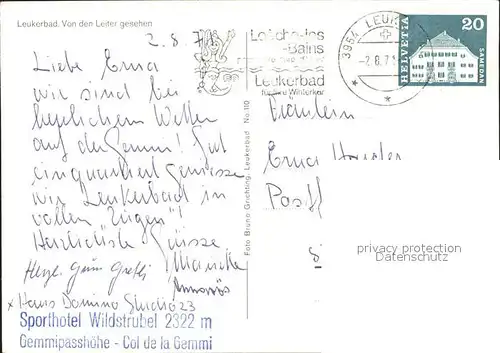 Leukerbad. Von den Leiter gesehen
2. 8. 71
Liebe Erna
wir sind bei
herrlichem Wetter
auf der Gemmi! Gut
geniesse
wir Leukerbad in
vollen Zügen!
Herzlichste Grüsse
Herzl.
Hans Domino
Sporthotel Wildstrubel 2322 m
Gemmipasshöhe - Col de la Gemmi
Foto Bruno Grichting, Leukerbad No. 110
Loèche-les
-Bains
Leukerbad
für Ihre Winterkur
3954 LEUK
-2.8.71
HELVETIA
20
SAMEDAN
Fräulein
Erna
Postf
privacy protection
Datenschutz